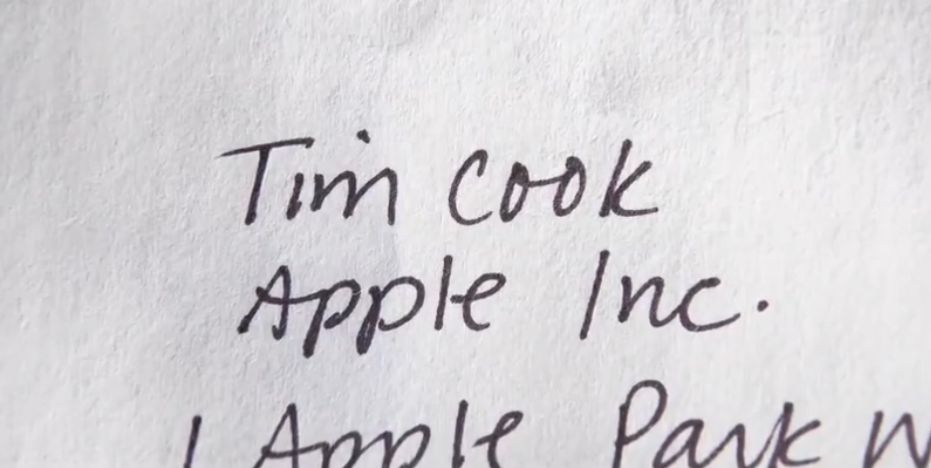 Tim Cook
Apple Inc.
1 Apple Park